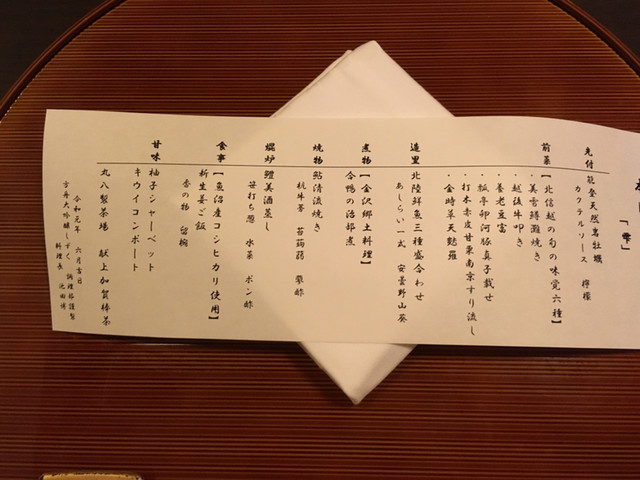 「雫」
先付
能登天然岩牡蠣
カクテルソース 檸檬
前菜
【北信越の旬の味覚六種】
・美雪鱒灘焼き
・越後牛叩き
・養老豆富
・瓢亭卵河豚真子載せ
・打木赤皮甘栗南京すり流し
・金時草天麩羅
造里
北陸鮮魚三種盛合わせ
あしらい一式 安曇野山葵
煮物
【金沢郷土料理】
合鴨の治部煮
焼物
鮎清流焼き
杭牛蒡 苔蒟蒻 蓼酢
焜炉
鱧美酒蒸し
笹打ち葱 水菜 ポン酢
食事
【魚沼産コシヒカリ使用】
新生姜ご飯
香の物 留椀
甘味
柚子シャーベット
キウイコンポート
丸八製茶場 献上加賀棒茶
令和元年 六月吉日
方舟大吟醸しずく 調理部謹製
料理長 池田